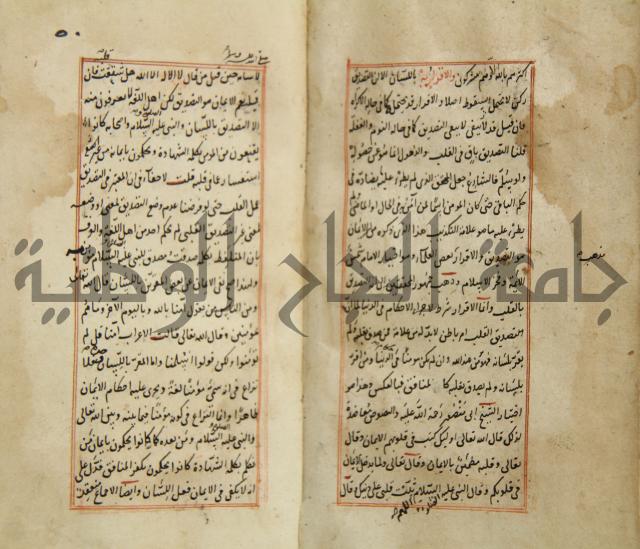 اكثرهم بالله الا وهم مشركون والاقرار به باللسان الا ان التصديق
ركن لا يحتمل السقوط اصلا والاقرار قد يحتمله كما في حالة الاكراه
فان قيل قد لا يبقى التصديق كما في حالة النوم والغفلة
قلنا التصديق باق في القلب والذهول انما هو عن حصوله
ولو سلم فالشارع جعل المحقق الذي لم يطرء عليه ما يضاده في
حكم الباقي حتى كان المؤمن اسما لمن آمن في الحال او في الماضي ولم
يطرء عليه ما هو علامة التكذيب هذا الذي ذكره من ان الايمان
هو التصديق والاقرار بعض العلماء وهو اختيار الامام شمس
مذهب
الائمة وفخر الاسلام وذهب جمهور المحققين الى انه التصديق
بالقلب وانما الاقرار شرط لاجراء الاحكام في الدنيا لما ان
التصديق القلب امر باطن لا بد له من علامة فمن صدق بقلبه ولم
يقر بلسانه فهو مؤمن عند الله وان لم يكن مؤمنا في الدنيا ومن اقر
بلسانه ولم يصدق بقلبه كالمنافق فبالعكس وهذا هو
اختيار الشيخ ابي منصور رحمة الله عليه والنصوص معاضدة
لذلك قال الله تعالى اولئك كتب في قلوبهم الايمان وقال
تعالى وقلبه مطمئن بالايمان وقال تعالى ولما يدخل الايمان
في قلوبكم وقال النبي عليه السلام ثبت قلبي على دينك وقال
اللهم
لاسامة حين قتل من قال لا اله الا الله هل شققت قلبه فان
قيل نعم الايمان هو التصديق لكن اهل اللغة لا يعرفون منه
الا التصديق باللسان والنبي عليه السلام واصحابه كانوا
يقنعون من المؤمن بكلمة الشهادة ويحكمون بايمانه من غير
استفسار عما في قلبه قلت لا خفاء في ان المعتبر في التصديق
عمل القلب حتى لو فرضنا عدم وضع التصديق لمعنى او وضعه
لمعنى غير التصديق القلبي لم يحكم احد من اهل اللغة والعرف
بان المتلفظ بكلمة صدقت مصدق للنبي عليه السلام
ولهذا صح نفي الايمان عن بعض المقرين باللسان قال الله
ومن الناس من يقول آمنا بالله وباليوم الآخر وما هم
بمؤمنين وقال الله تعالى قالت الاعراب آمنا قل لم
تؤمنوا ولكن قولوا اسلمنا واما المقر باللسان فلا
نزاع في انه يسمى مؤمنا لغة ويجري عليه احكام الايمان
ظاهرا وانما النزاع في كونه مؤمنا فيما بينه وبين الله تعالى
والنبي عليه السلام ومن بعده كما كانوا يحكمون بايمان من
تكلم بكلمة الشهادة كانوا يحكمون بكفر المنافق فدل على
انه لا يكفي في الايمان فعل اللسان وايضا الاجماع منعقد
جامعة النجاح الوطنية